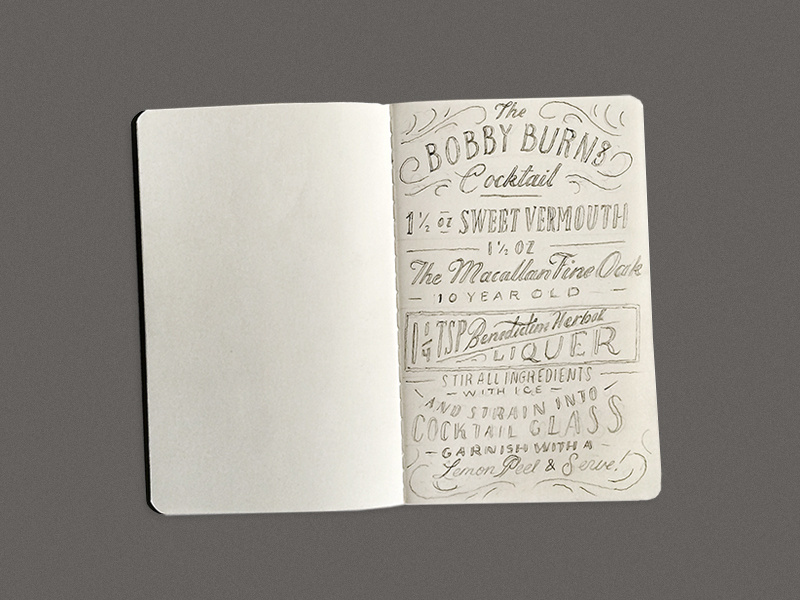 The
BOBBY BURNS
Cocktail
1 1/2 oz SWEET VERMOUTH
1 1/2 OZ
The Macallan Fine Oak
10 YEAR OLD
1 1/4 TSP Benedictin Herbal
LIQUER
STIR ALL INGREDIENTS
WITH ICE
AND STRAIN INTO
COCKTAIL GLASS
GARNISH WITH A
Lemon Peel & Serve!